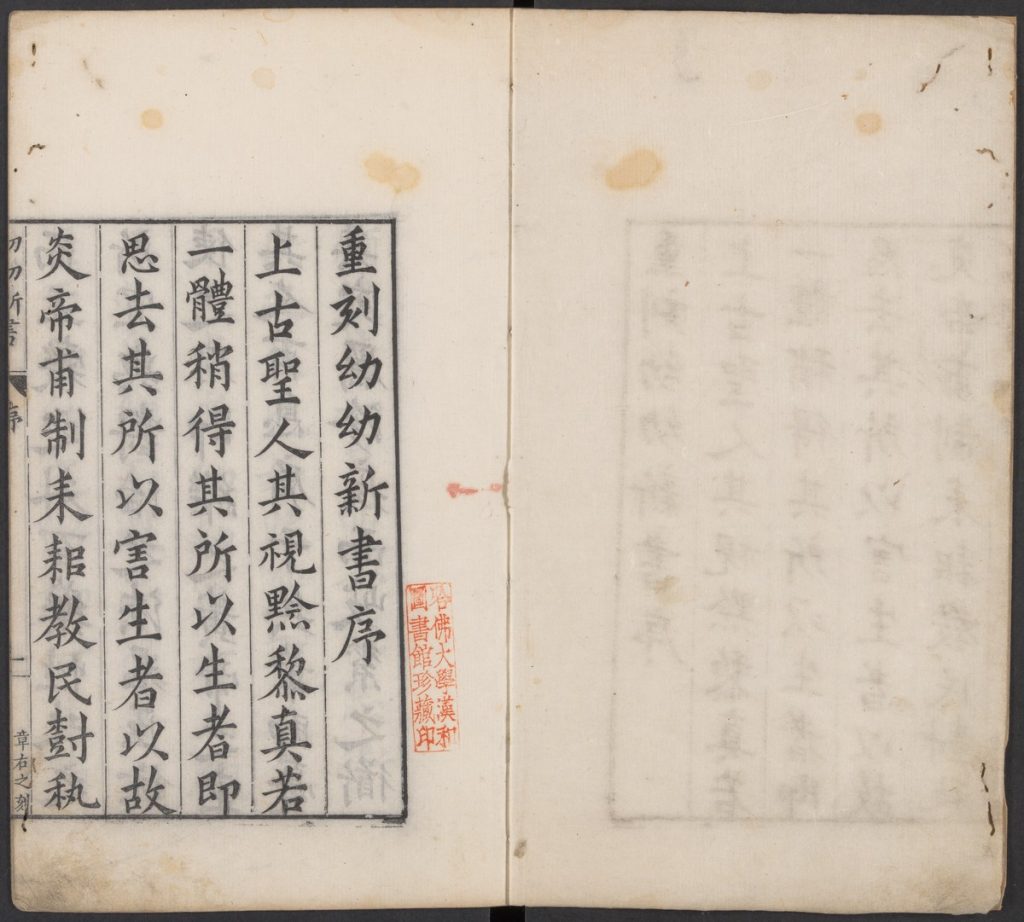 重刻幼幼新書序
上古聖人其視黔黎真若
一體稍得其所以生者即
思去其所以害生者以故
炎帝甫制耒耜教民𡬾秇
幼幼新書
序
章右之刻
哈佛大學漢和
圖書館珍藏印